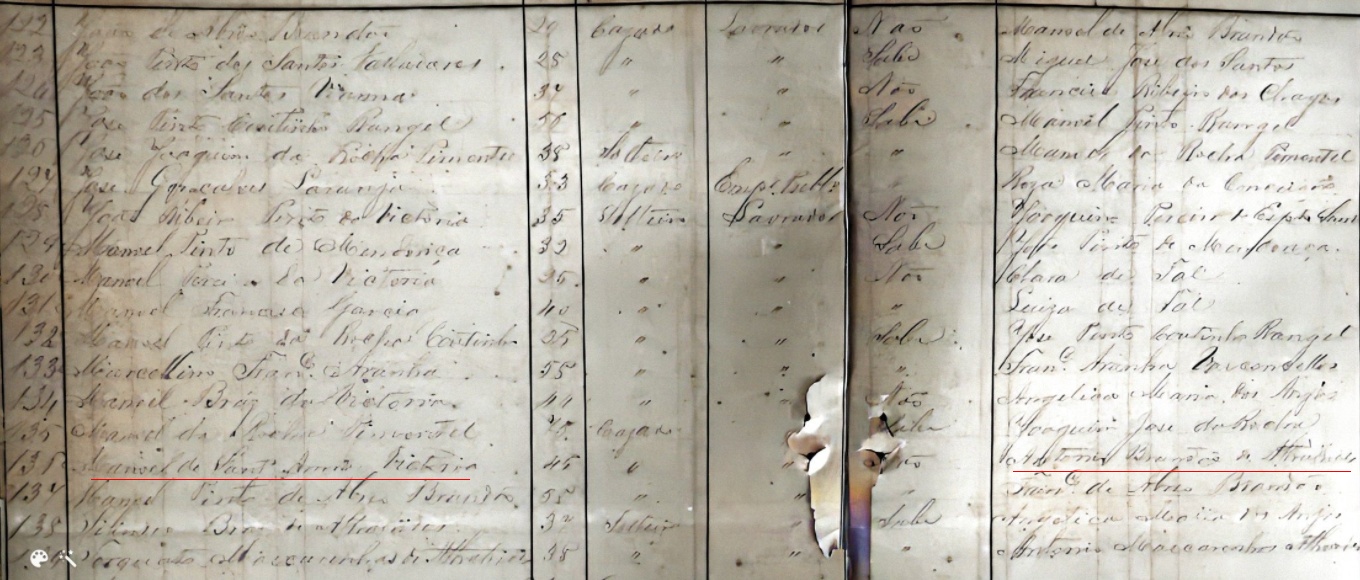 122 João de Abrêo Brandão 29 Cazado Lavrador Não Manoel de Abrêo Brandão
123 João Pinto dos Santos 28 " " Sabe Miguel José dos Santos
124 João dos Santos Vianna 37 " " Não Francisco Ribeiro das Chagas
125 José Pinto Coutinho Rangel 50 " " Sabe Manoel Pinto Rangel
126 José Joaquim da Rocha Pimentel 38 Solteiro " " Manoel da Rocha Pimentel
127 José Gonçalves Laranja 53 Cazado " Roza Maria da Conceição
128 João Ribeiro Pinto da Victoria 35 Solteiro Lavrador Não Joaquim Pereira do
129 Manoel Pinto de Mendonça 32 " " Sabe José Pinto de Mendonça
130 Manoel da Victoria 25 " " Não Clara de Tal
131 Manoel Francisco Garcia 40 " " " Luiza de Tal
132 Manoel Pinto da Rocha Coutinho 25 " " Sabe José Pinto Coutinho Rangel
133 Marcellino Franco. Aranha 55 " " Franco. Aranha Vasconcellos
134 Manoel Braz da Victoria 44 " Não Angelica Maria dos Anjos
135 Manoel da Rocha Pimentel Cazado Sabe Joaquim José da Rocha
136 Manoel de Sant'Anna Victoria 45 " Não Antonio Brandão de
137 Manoel Pinto de Abrêo Brandão 55 " " Franco. de Abrêo Brandão
138 Braz de 37 Solteiro " Sabe Angelica Maria dos Anjos
Torquato Mascarenhas de 38 " " " Antonio Mascarenhas